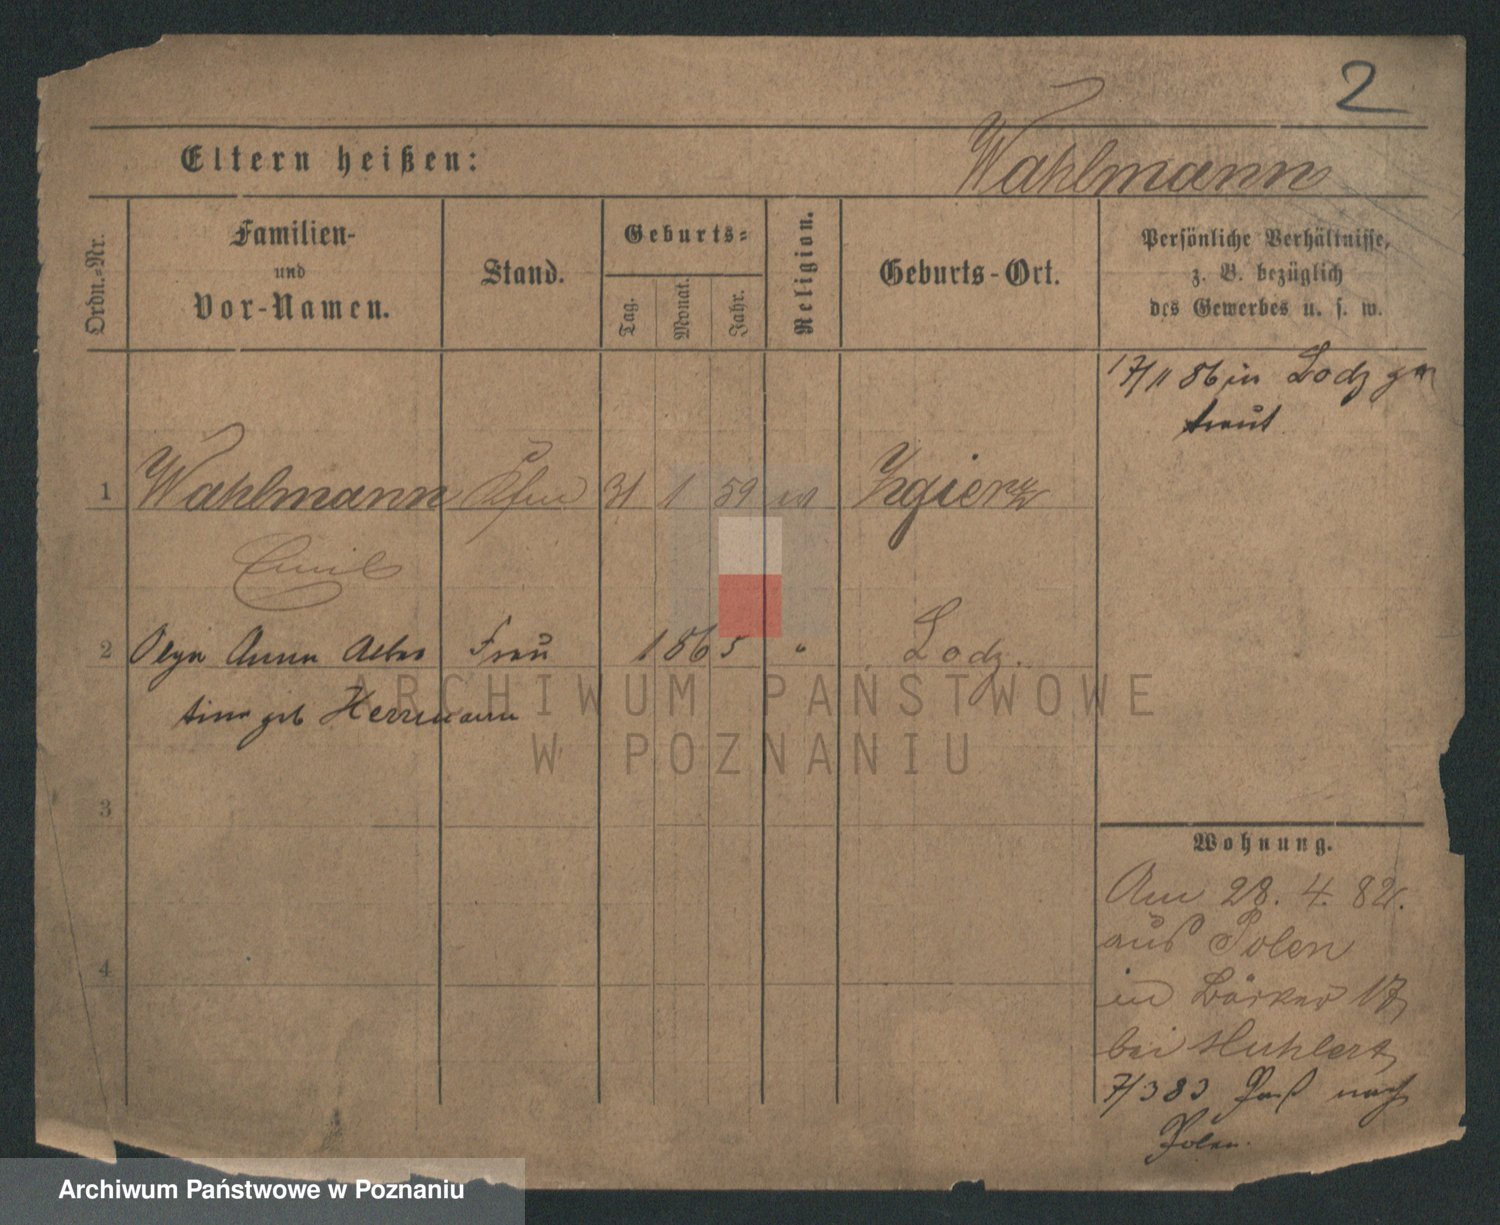 2
Eltern heißen:
Wahlmann
Ordn.-Nr.
Familien-
und
Vor-Namen.
Stand.
Geburts-
Tag.
Monat.
Jahr.
Religion.
Geburts-Ort.
Persönliche Verhältnisse,
z. B. bezüglich
des Gewerbes u. s. w.
17/11 86 in Lodz ge
traut
1 Wahlmann Kfm 31 1 59 Zgierz
Emil
2 Olga Anna Alber Frau 1865 " Lodz.
tine geb Herrmann
ARCHIWUM PAŃSTWOWE
W POZNANIU
3
4
Wohnung.
Am 28. 4. 82.
aus Polen
in Bäcker 17
bei Huhlert
7/3 83 Paß nach
Polen.
Archiwum Państwowe w Poznaniu